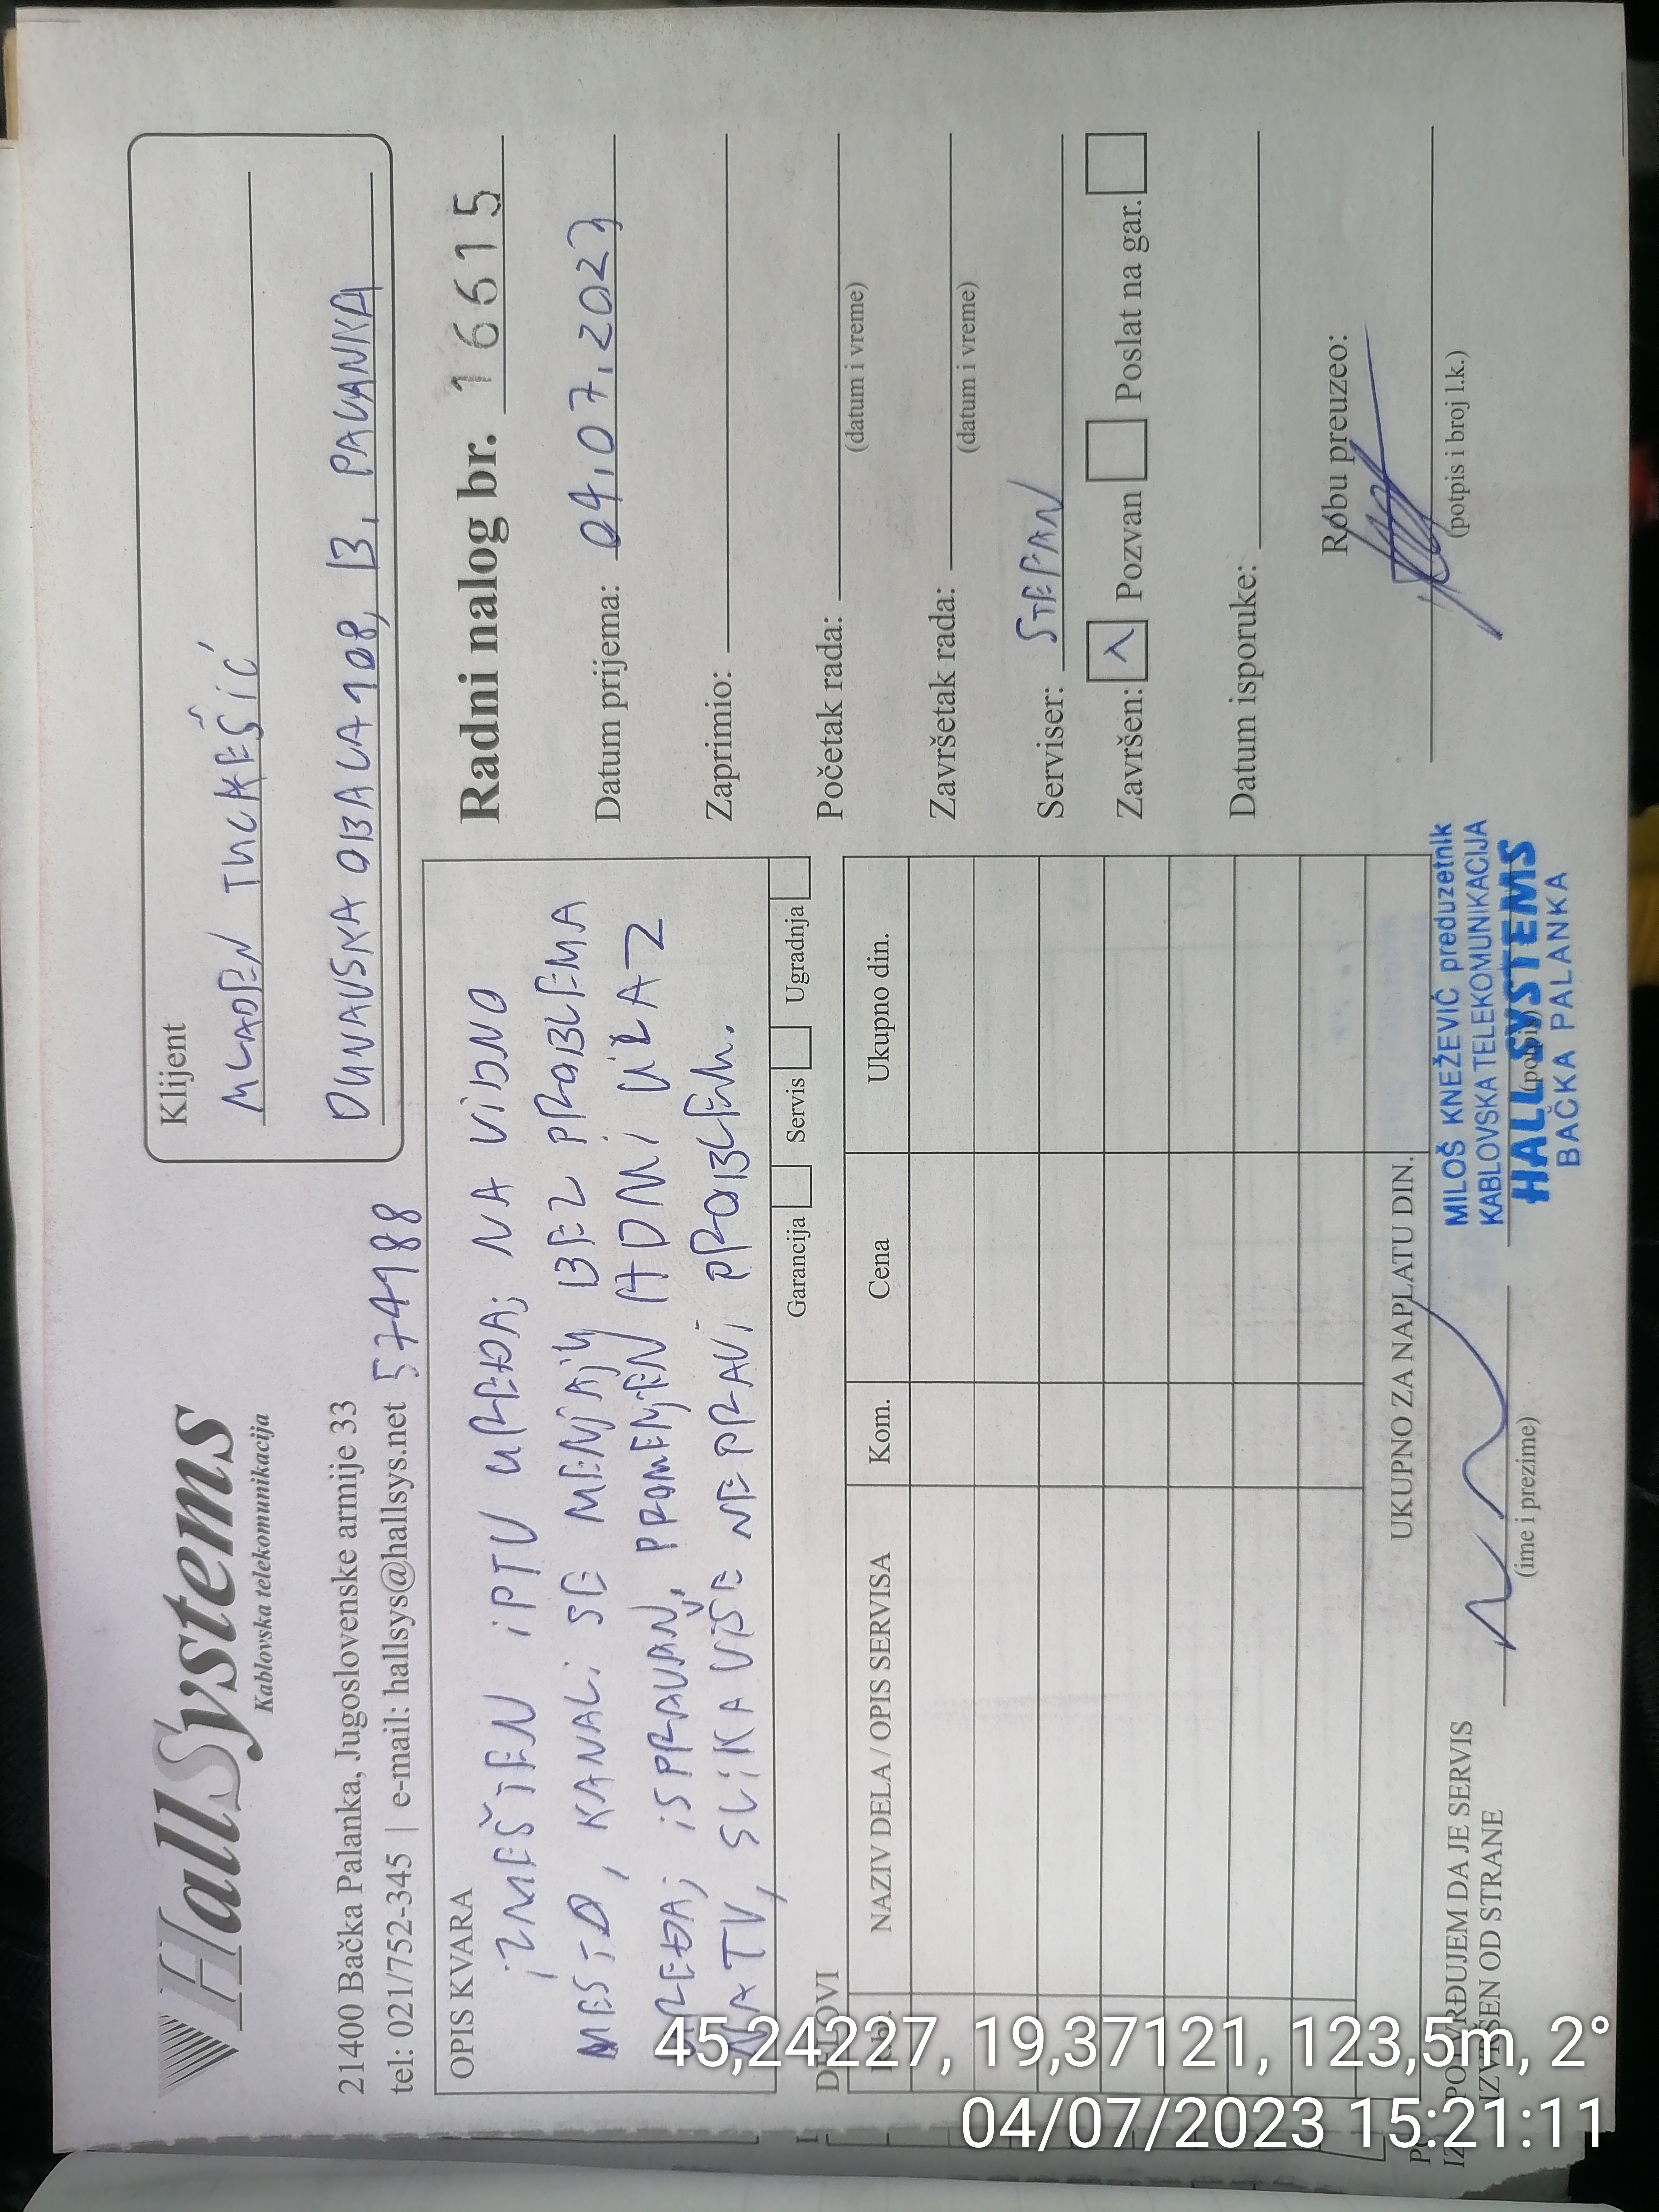 HallSystems
Kablovska telekomunikacija
21400 Bačka Palanka, Jugoslovenske armije 33
tel: 021/752-345 | e-mail: hallsys@hallsys.net
574188
Klijent
MLADEN
DUNAVSKA OBALA 108, B. PALANKA
OPIS KVARA
IZMEŠTEN IPTV UREĐAJ NA VIDNO
MESTO, KANALI SE MENJAJU BEZ PROBLEMA
UREĐAJ ISPRAVAN, PROMENJEN HDMI ULAZ
NA TV, SLIKA VIŠE NE PRAVI PROBLEM.
Garancija Servis Ugradnja
Radni nalog br. 16615
Datum prijema: 04.07.2023
Zaprimio:
Početak rada:
(datum i vreme)
Završetak rada:
(datum i vreme)
Serviser: STEPAN
Završen: Pozvan Poslat na gar.
Datum isporuke:
Robu preuzeo:
(potpis i broj l.k.)
DELOVI
Rb. NAZIV DELA / OPIS SERVISA Kom. Cena Ukupno din.
UKUPNO ZA NAPLATU DIN.
POTVRĐUJEM DA JE SERVIS
IZVRŠEN OD STRANE
(ime i prezime)
(potpis)
MILOŠ KNEŽEVIĆ preduzetnik
KABLOVSKA TELEKOMUNIKACIJA
HALL SYSTEMS
BAČKA PALANKA
45,24227, 19,37121, 123,5m, 2°
04/07/2023 15:21:11